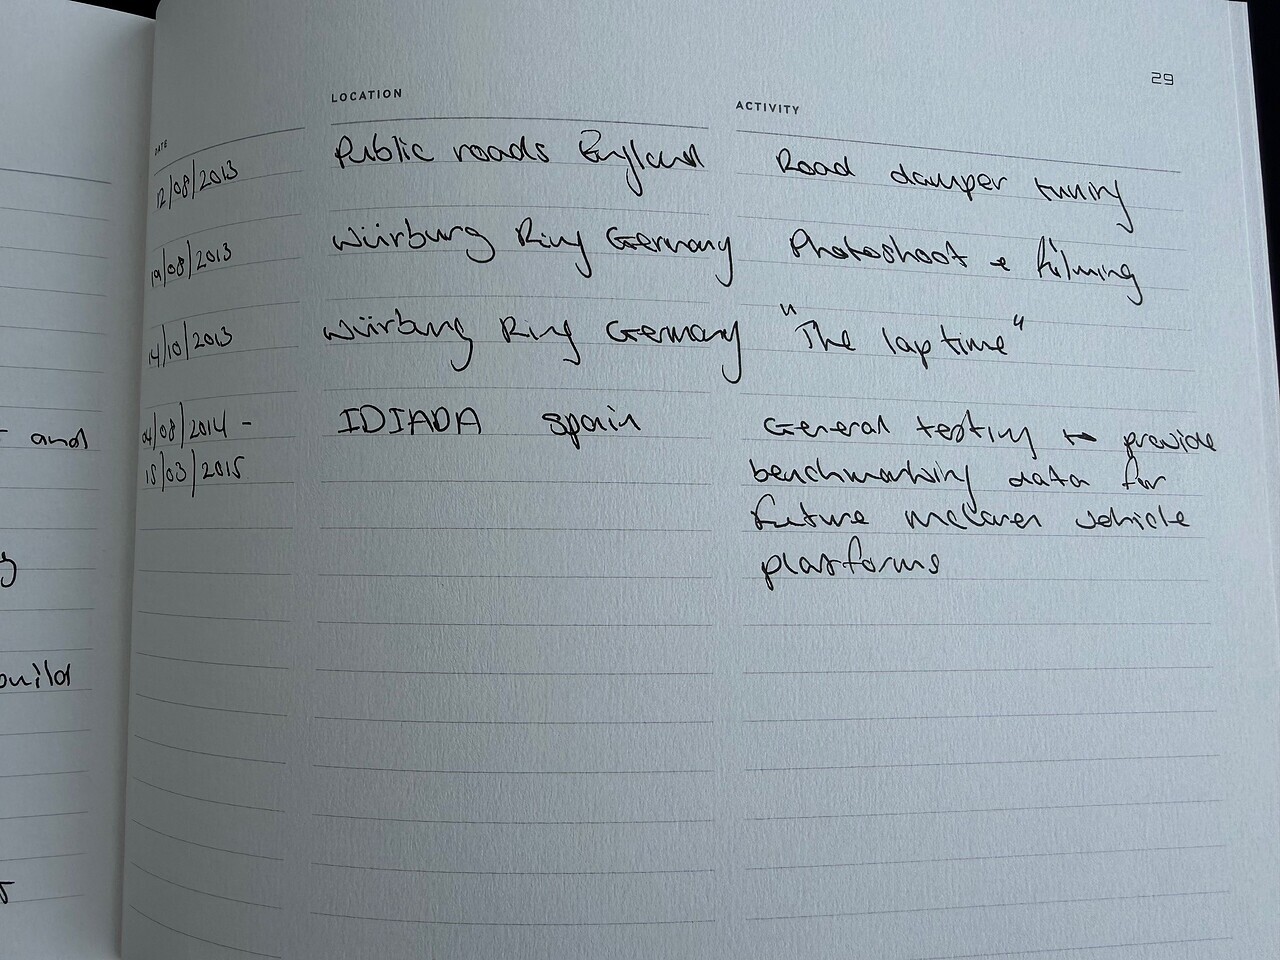 29
DATE LOCATION ACTIVITY
12/08/2013 Public roads England Road damper tuning
19/08/2013 Würburg Ring Germany Photoshoot & filming
14/10/2013 Würburg Ring Germany "The lap time"
04/08/2014 - IDIADA Spain General testing to provide
15/03/2015 benchmarking data for
future mclaren vehicle
platforms
and
build